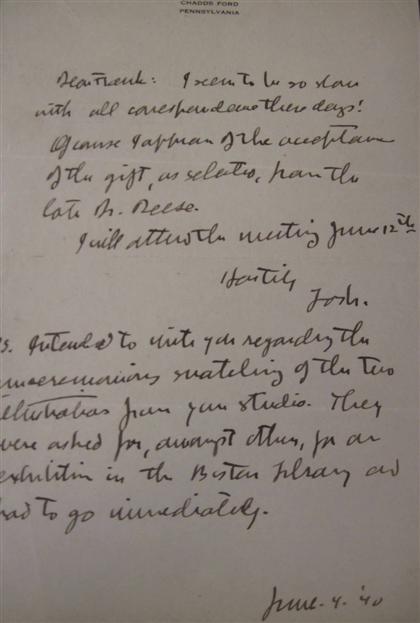 CHADDS FORD
PENNSYLVANIA
Dear Frank: I seem to be so slow
with all correspondence these days!
Of course I approve of the acceptance
of the gift, as selected, from the
late Dr. Reese.
I will attend the meeting June 12th
Hastily
Josh.
S. Intended to write you regarding the
unceremonious snatching of the two
illustrations from your studio. They
were asked for, amongst others, for an
exhibition in the Boston Library and
had to go immediately.
June. 4. '40